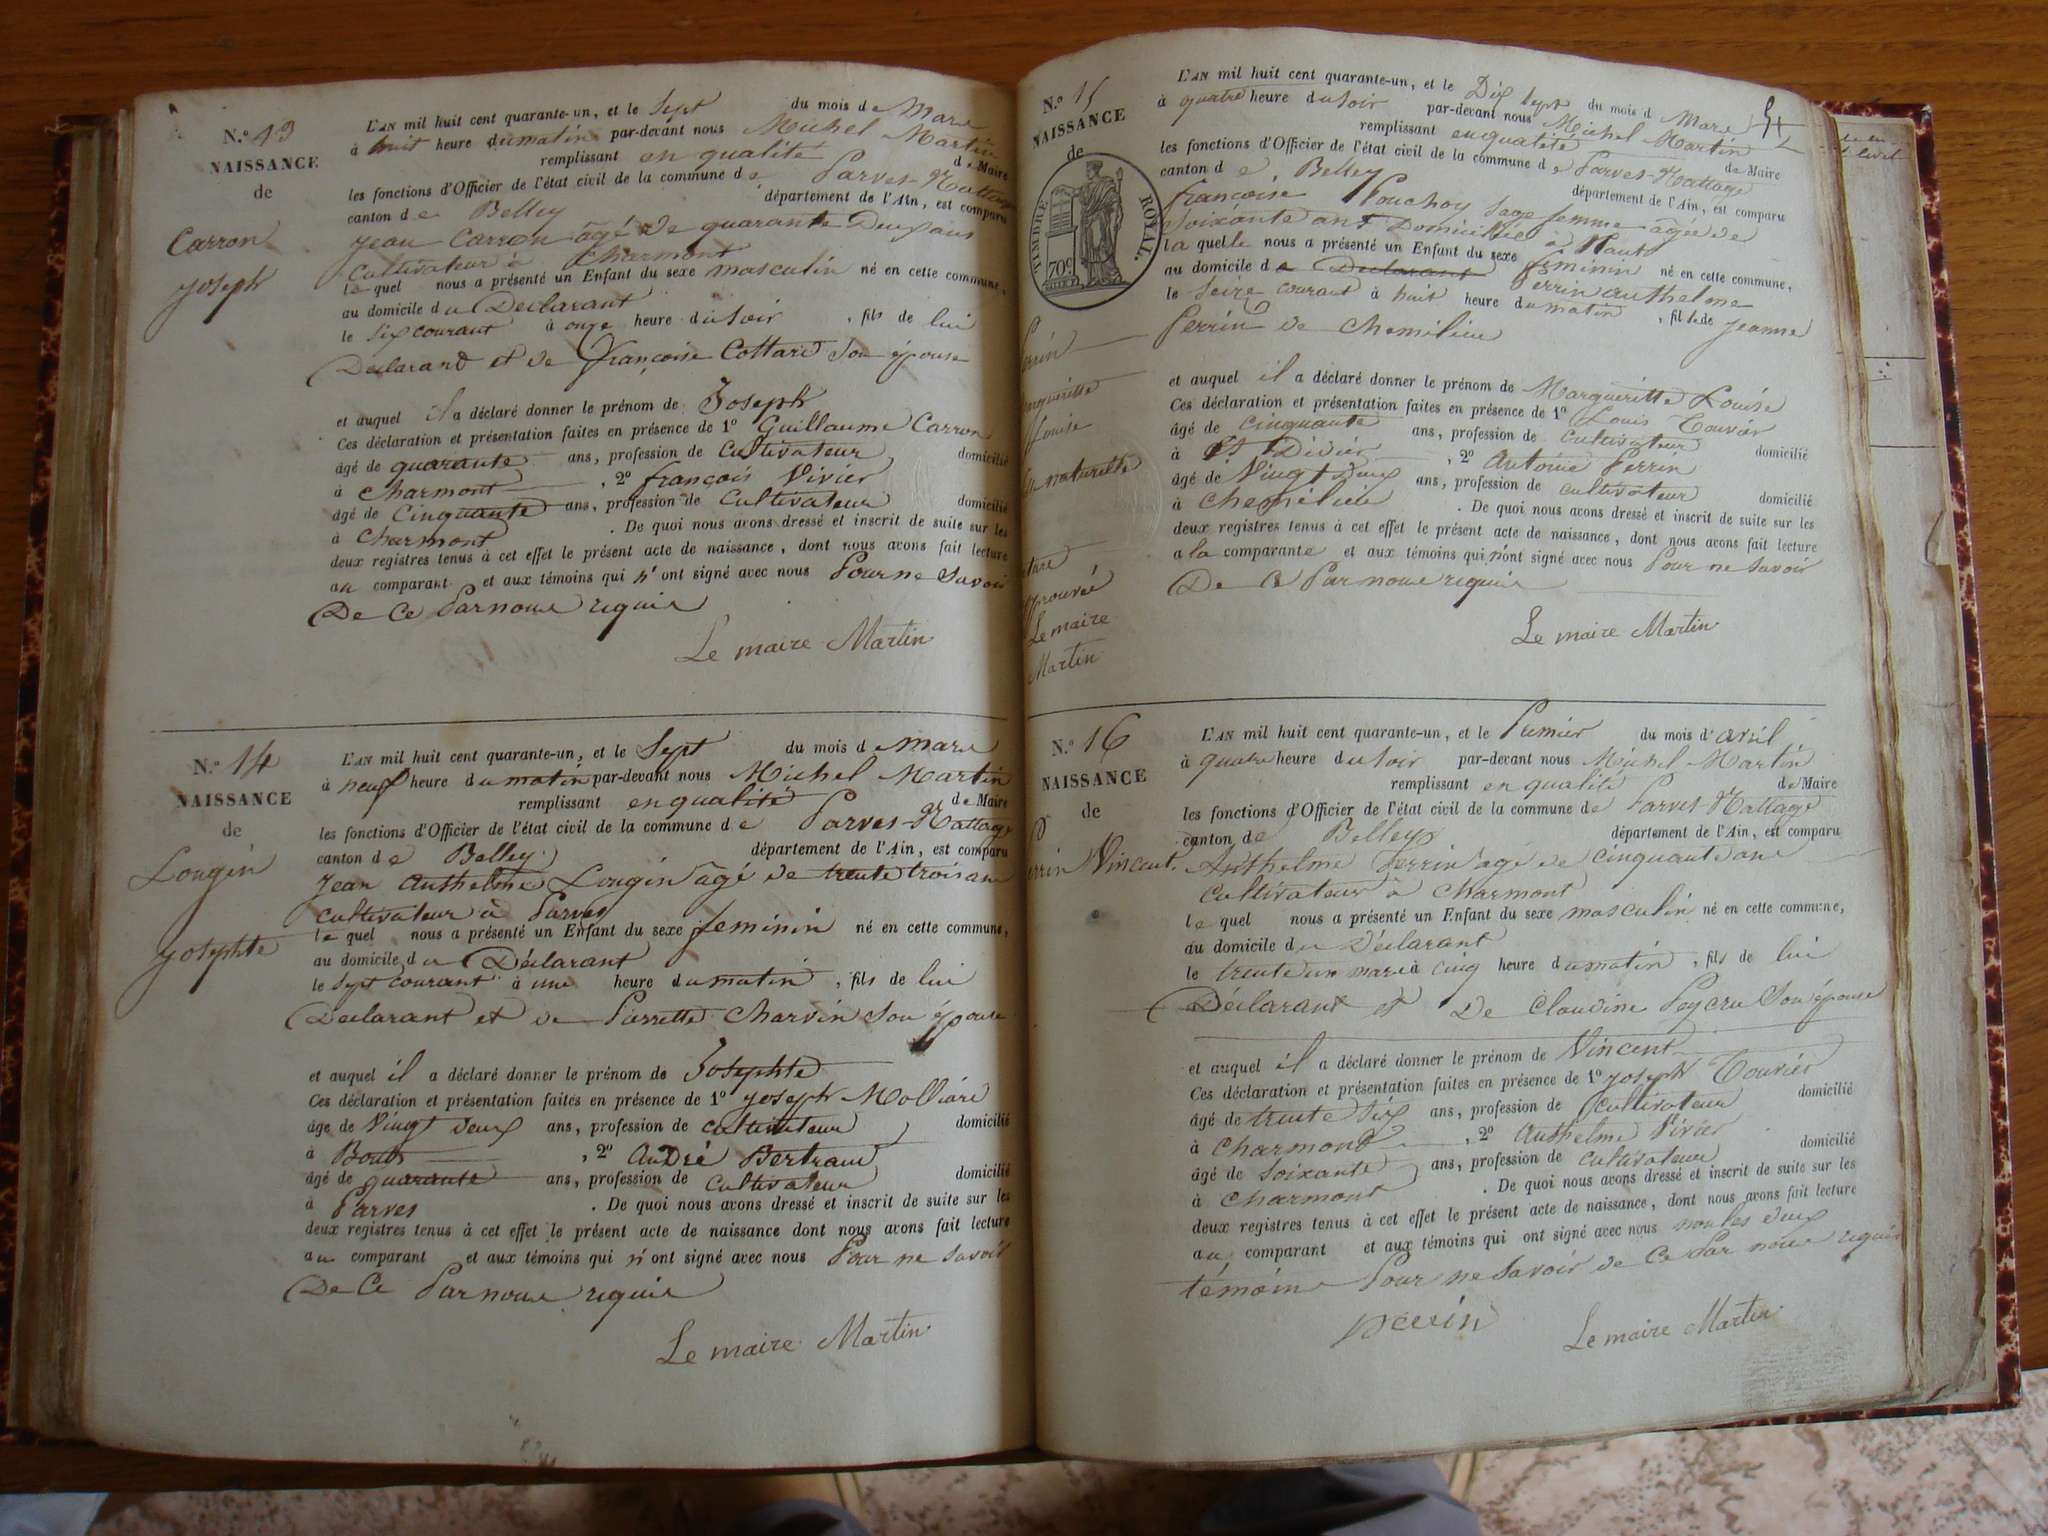 N.o 13
NAISSANCE
de
Carron
Joseph
L'AN mil huit cent quarante-un, et le Sept du mois de Mars
à huit heure du matin par-devant nous Michel Martin
remplissant en qualité de Maire
les fonctions d'Officier de l'état civil de la commune de Parves-Nattage
canton de Belley département de l'Ain, est comparu
Jean Carron âgé de quarante Deux ans
Cultivateur à Charmont
lequel nous a présenté un Enfant du sexe masculin né en cette commune,
au domicile du Déclarant
le six courant à onze heure du soir, fils de lui
Declarant et de françoise Cottard Son épouse
et auquel il a déclaré donner le prénom de Joseph
Ces déclaration et présentation faites en présence de 1o Guillaume Carron
âgé de quarante ans, profession de Cultivateur domicilié
à Charmont, 2o françois Vivier
âgé de Cinquante ans, profession de Cultivateur domicilié
à Charmont. De quoi nous avons dressé et inscrit de suite sur les
deux registres tenus à cet effet le présent acte de naissance, dont nous avons fait lecture
au comparant et aux témoins qui n'ont signé avec nous Pour ne Savoir
De Ce Par nous requis
Le maire Martin
N.o 14
NAISSANCE
de
Longin
Josephte
L'AN mil huit cent quarante-un, et le Sept du mois de mars
à neuf heure du matin par-devant nous Michel Martin
remplissant en qualité de Maire
les fonctions d'Officier de l'état civil de la commune de Parves-Nattage
canton de Belley département de l'Ain, est comparu
Jean Anthelme Longin âgé de trente trois ans
cultivateur à Parves
lequel nous a présenté un Enfant du sexe feminin né en cette commune,
au domicile du Déclarant
le sept courant à une heure du matin, fils de lui
Declarant et de Pierrette Charvin Son épouse
et auquel il a déclaré donner le prénom de Josephte
Ces déclaration et présentation faites en présence de 1o Joseph
âge de Vingt deux ans, profession de cultivateur domicilié
à, 2o André Bertrand
âgé de quarante ans, profession de cultivateur domicilié
à Parves. De quoi nous avons dressé et inscrit de suite sur les
deux registres tenus à cet effet le présent acte de naissance dont nous avons fait lecture
au comparant et aux témoins qui n'ont signé avec nous Pour ne savoir
De Ce Par nous requis
Le maire Martin
N.o 15
NAISSANCE
de
TIMBRE ROYAL
70c
L'AN mil huit cent quarante-un, et le Dix Sept du mois d Mars
à quatre heure du soir par-devant nous Michel Martin
remplissant en qualité de Maire
les fonctions d'Officier de l'état civil de la commune de Parves-Nattage
canton de Belley département de l'Ain, est comparu
françoise Pouchoy Sage femme âgée de
Soixante ans Domiciliée à
laquelle nous a présenté un Enfant du sexe féminin né en cette commune,
au domicile de Declarant Perrin Anthelme
le seize courant à huit heure du matin, fil le de jeanne
Perrin de Chemilieu
et auquel il a déclaré donner le prénom de Margueritte Louise
Ces déclaration et présentation faites en présence de 1o Louis Touvier
âgé de cinquante ans, profession de cultivateur domicilié
à, 2o Antoine Perrin
âgé de Vingt Deux ans, profession de cultivateur domicilié
à Chemilieu. De quoi nous avons dressé et inscrit de suite sur les
deux registres tenus à cet effet le présent acte de naissance, dont nous avons fait lecture
a la comparante et aux témoins qui n'ont signé avec nous Pour ne savoir
De Ce Par nous requis
Le maire Martin
Louise
naturelle
Le maire
Martin
N.o 16
NAISSANCE
de
Vincent
L'AN mil huit cent quarante-un, et le Premier du mois d'avril
à quatre heure du soir par-devant nous Michel Martin
remplissant en qualité de Maire
les fonctions d'Officier de l'état civil de la commune de Parves-Nattage
canton de Belley département de l'Ain, est comparu
Anthelme Perrin âgé de cinquante ans
Cultivateur à Charmont
lequel nous a présenté un Enfant du sexe masculin né en cette commune,
au domicile du Déclarant
le trente un mars à cinq heure du matin, fils de lui
Déclarant et De Claudine Peycru Son épouse
et auquel il a déclaré donner le prénom de Vincent
Ces déclaration et présentation faites en présence de 1o joseph Touvier
âgé de trente six ans, profession de cultivateur domicilié
à Charmont, 2o Anthelme Vivier
âgé de soixante ans, profession de cultivateur domicilié
à Charmont. De quoi nous avons dressé et inscrit de suite sur les
deux registres tenus à cet effet le présent acte de naissance, dont nous avons fait lecture
au comparant et aux témoins qui ont signé avec nous non les deux
témoins Pour ne savoir de Ce Par nous requis
perrin Le maire Martin